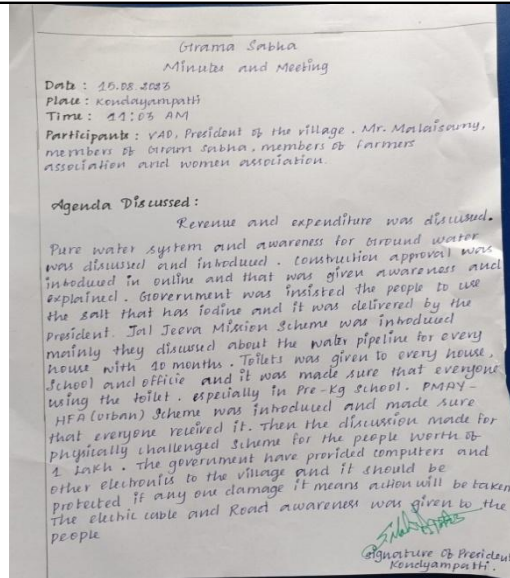 Grama Sabha
Minutes and Meeting
Date : 15.08.2023
Place : Kondayampatti
Time : 11:03 AM
Participants : VAO, President of the village. Mr. Malaisamy,
members of Gram Sabha, members of farmers
association and women association.
Agenda Discussed :
Revenue and expenditure was discussed.
Pure water system and awareness for Ground water
was discussed and introduced. Construction approval was
introduced in online and that was given awareness and
explained. Government was insisted the people to use
the salt that has iodine and it was delivered by the
president. Jal Jeeva Mission Scheme was introduced
mainly they discussed about the water pipeline for every
house with 10 months. Toilets was given to every house,
School and office and it was made sure that everyone
using the toilet. especially in Pre-Kg School. PMAY-
HFA (Urban) Scheme was introduced and made sure
that everyone received it. Then the discussion made for
physically challenged Scheme for the people worth of
1 Lakh. The government have provided computers and
other electronics to the village and it should be
protected if any one damage it means action will be taken
The electric cable and Road awareness was given to the
people
Signature of President
Kondyampatti.